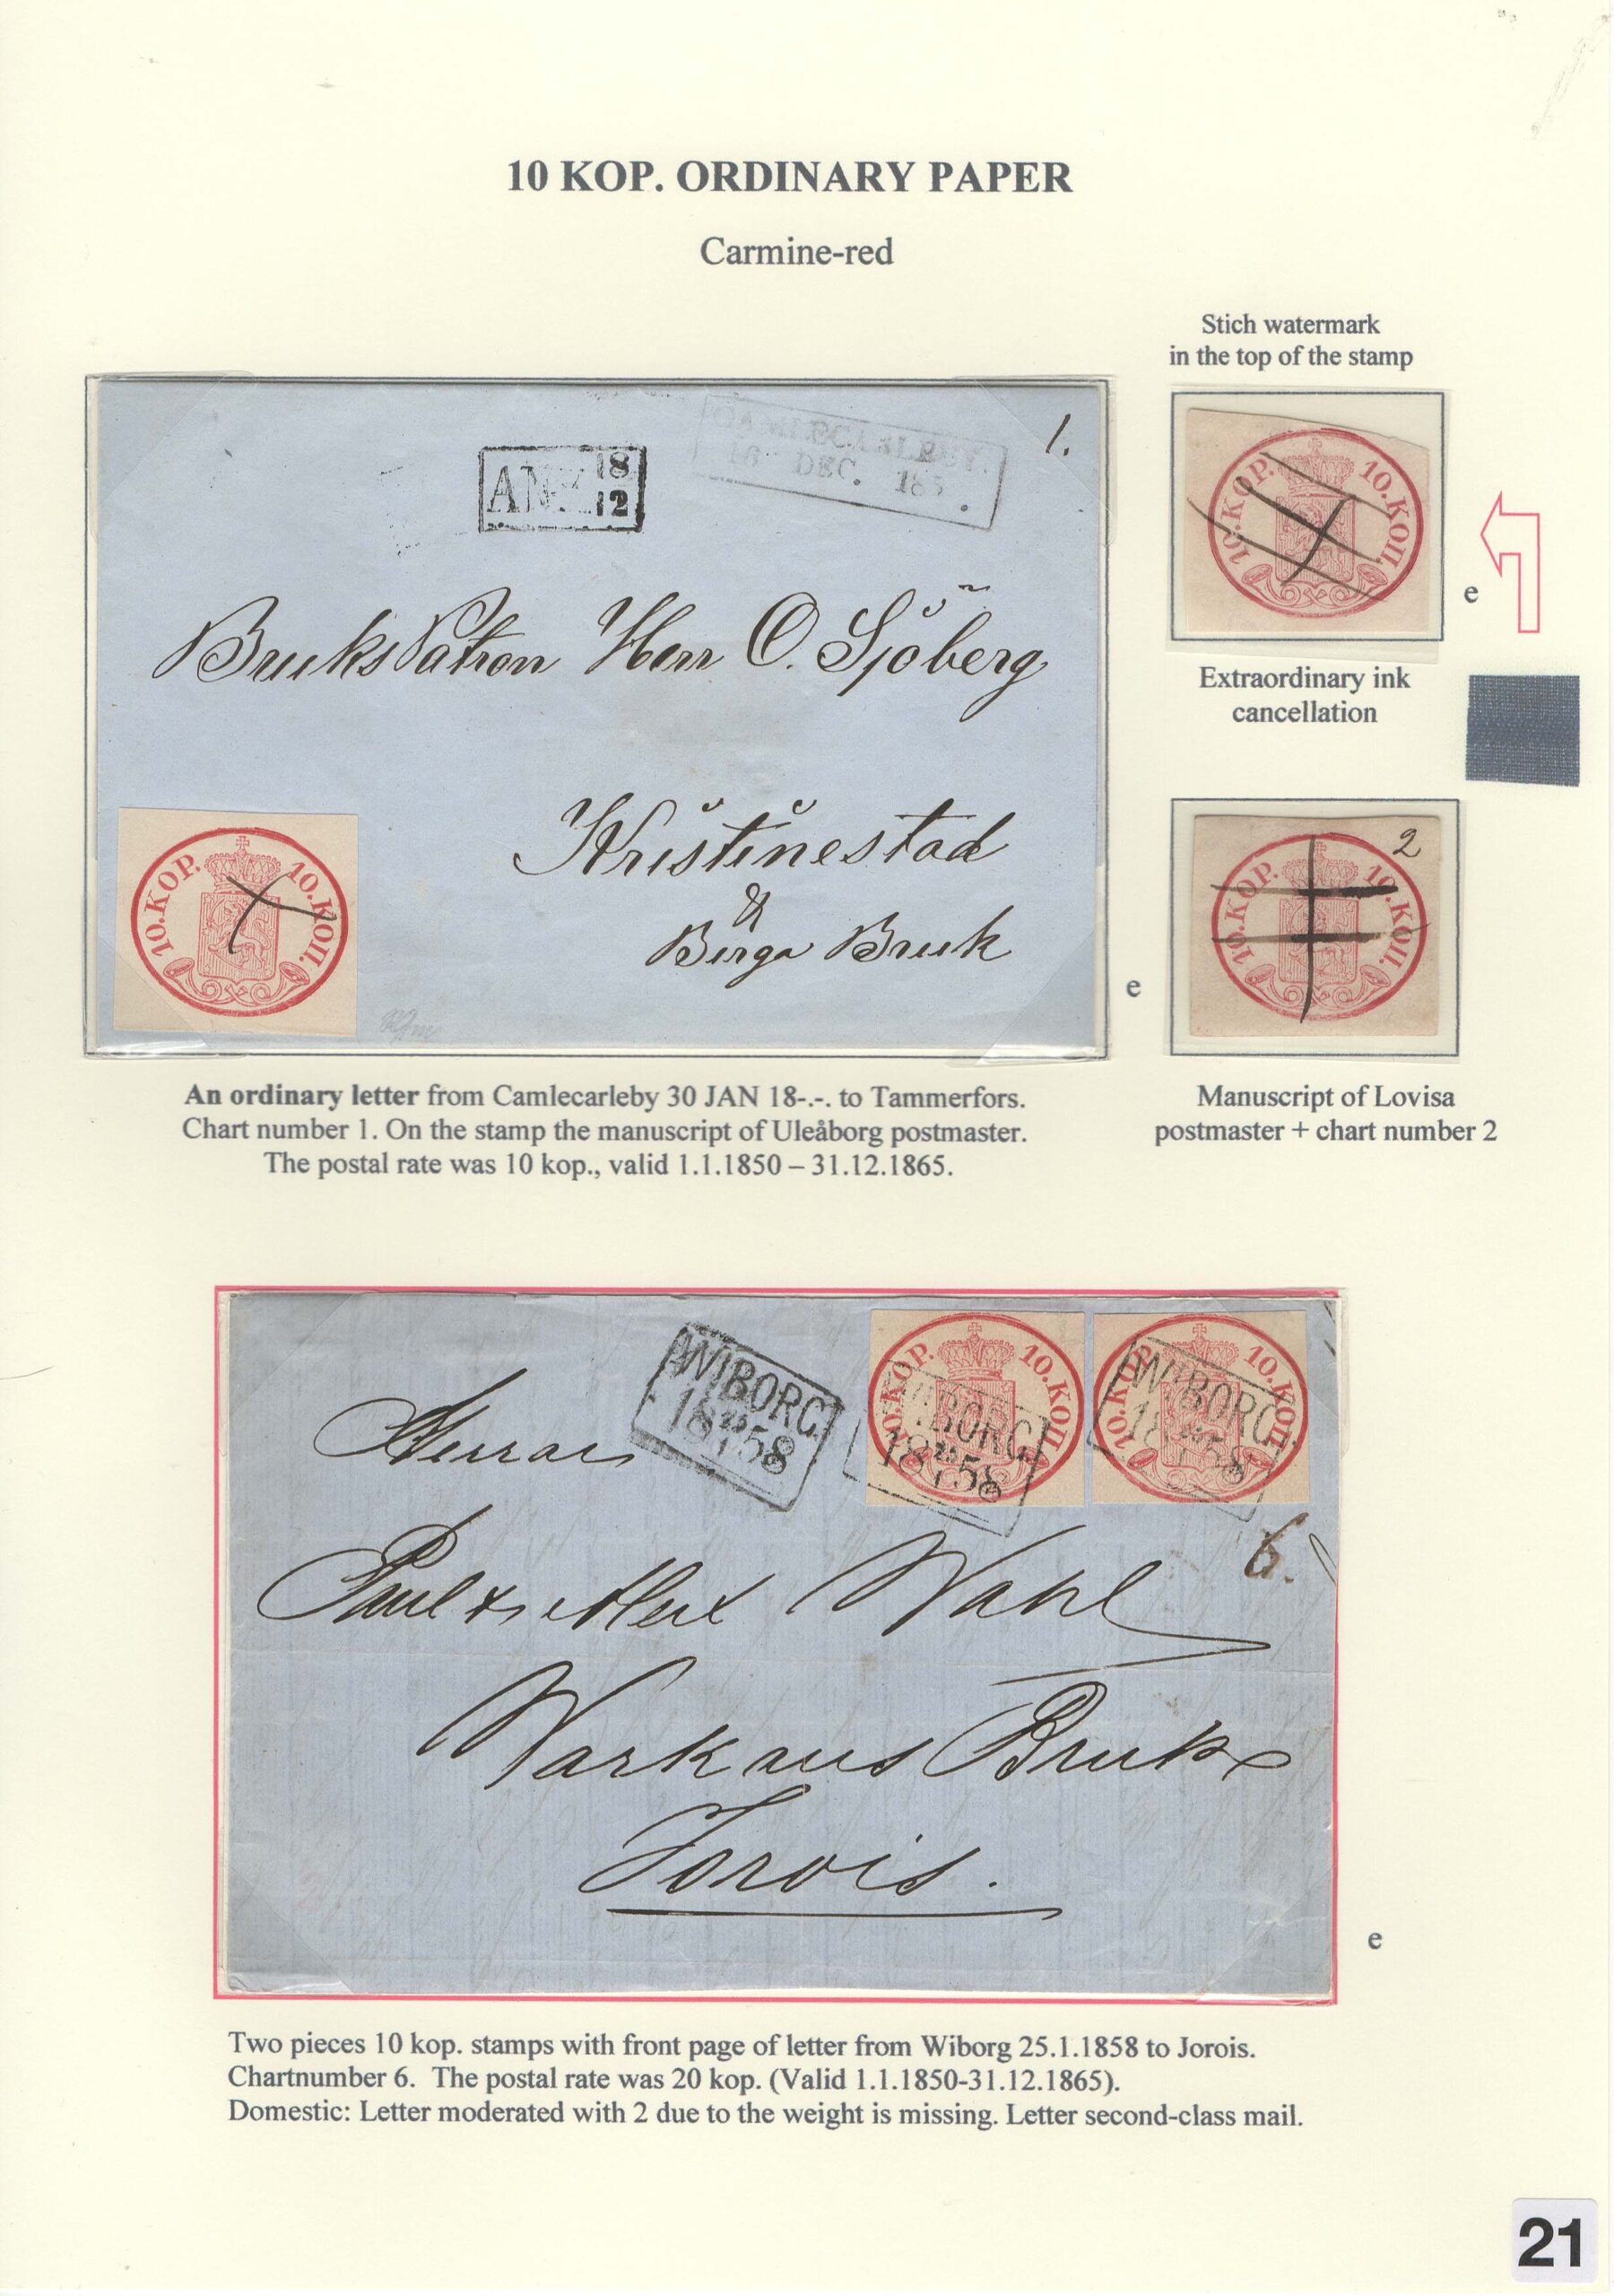 10 KOP. ORDINARY PAPER
Carmine-red
Stich watermark
in the top of the stamp
1.
18
12
DEC. 185
BruksPatron Herr O. Sjöberg
Kristinestad
&
Bruk
10.KOP. 10.КОП.
e
10.KOP. 10.КОП.
e
Extraordinary ink
cancellation
2
10.KOP. 10.КОП.
An ordinary letter from Camlecarleby 30 JAN 18-.-. to Tammerfors.
Chart number 1. On the stamp the manuscript of Uleåborg postmaster.
The postal rate was 10 kop., valid 1.1.1850 – 31.12.1865.
Manuscript of Lovisa
postmaster + chart number 2
WIBORG.
1858
10.KOP. 10.КОП.
WIBORG.
1858
10.KOP. 10.КОП.
WIBORG.
1858
6.
Herrar
Paul & Alex Wahl
Warkaus Bruk
Jorois.
e
Two pieces 10 kop. stamps with front page of letter from Wiborg 25.1.1858 to Jorois.
Chartnumber 6. The postal rate was 20 kop. (Valid 1.1.1850-31.12.1865).
Domestic: Letter moderated with 2 due to the weight is missing. Letter second-class mail.
21